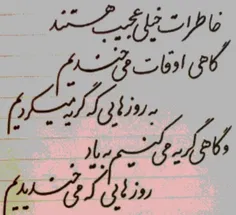 خاطرات خیلی عجیب هستند
گاهی اوقات می خندیم
به روزهایی که گریه میکردیم
و گاهی گریه می کنیم به یاد
روزهایی که می خندیدیم